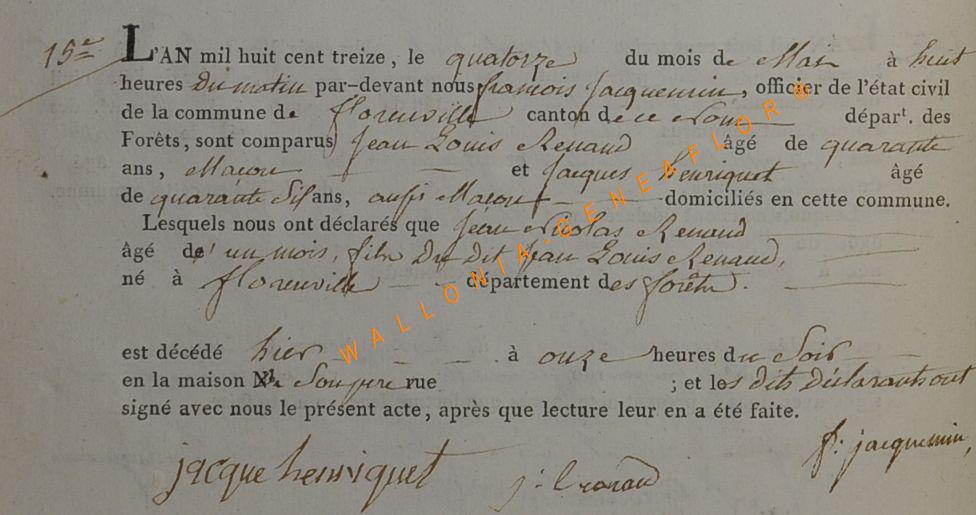 15e
L'AN mil huit cent treize, le quatorze du mois de Mars à huit
heures Du matin par-devant nous françois Jacquemin, officier de l'état civil
de la commune de florenville canton de ce Nom départ. des
Forêts, sont comparus Jean Louis Renaud âgé de quarante
ans, Macon et Jacques henriquet âgé
de quarante Six ans, aussi Macon domiciliés en cette commune.
Lesquels nous ont déclarés que Jean Nicolas Renaud
âgé d'un mois, fils Du Dit Jean Louis Renaud,
né à florenville département des forêts.
est décédé hier à onze heures du Soir
en la maison rue ; et les dits Déclarants ont
signé avec nous le présent acte, après que lecture leur en a été faite.
jacque henriquet j: l renaud f: jacquemin
WALLONIA-GENEAFLOR®